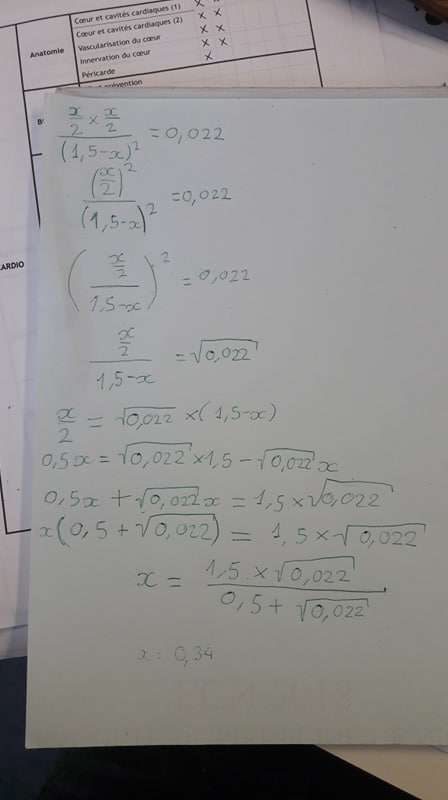 Cœur et cavités cardiaques (1) × ×
Cœur et cavités cardiaques (2) × ×
Anatomie
Vascularisation du cœur × ×
Innervation du cœur × ×
Péricarde ×
prévention
CARDIO
x/2 × x/2 / (1,5-x)² = 0,022
(x/2)² / (1,5-x)² = 0,022
(x/2 / 1,5-x)² = 0,022
x/2 / 1,5-x = √0,022
x/2 = √0,022 × (1,5-x)
0,5x = √0,022 × 1,5 - √0,022 x
0,5x + √0,022 x = 1,5 × √0,022
x(0,5 + √0,022) = 1,5 × √0,022
x = 1,5 × √0,022 / 0,5 + √0,022
x = 0,34
ECN 2018